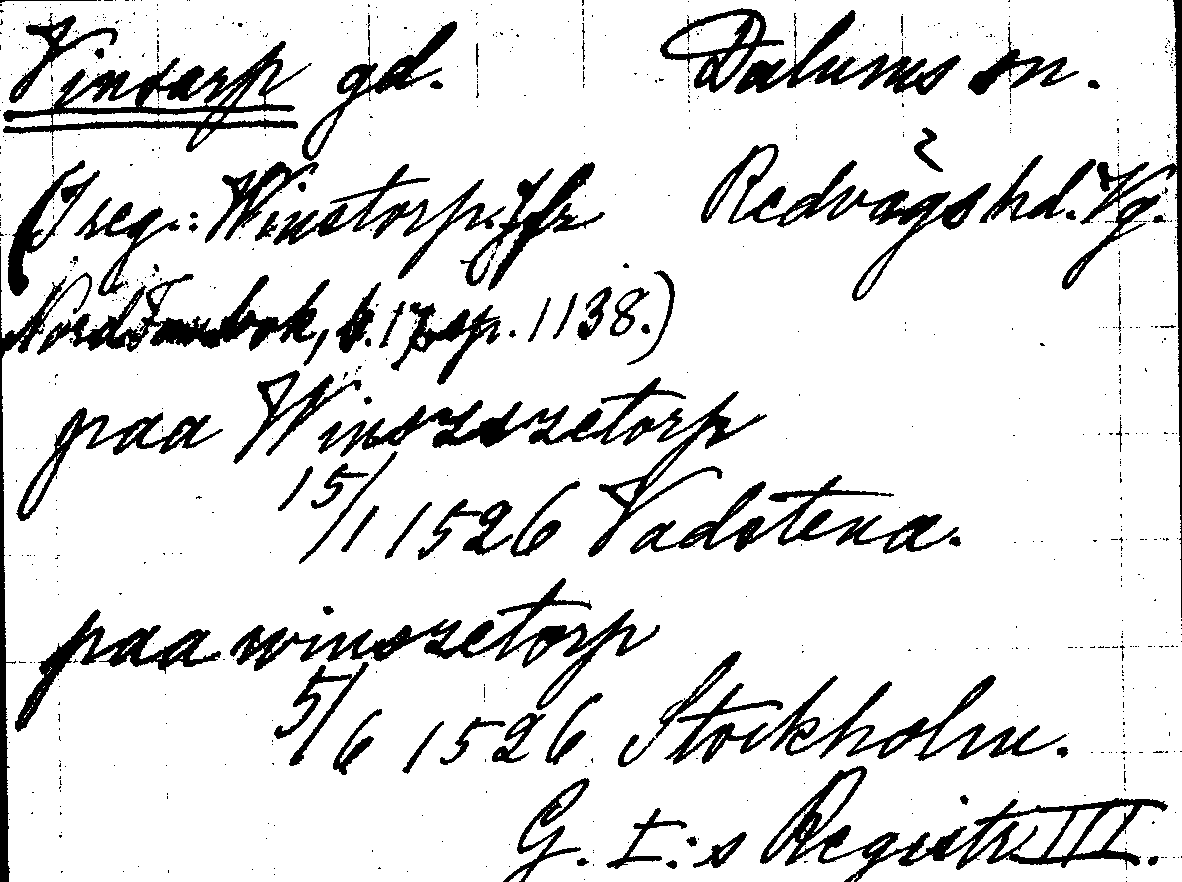 Vinsarp gd. Dalums sn.
(I reg.: Winstorp. Jfr Redvägs hd. Vg.
Nord. Fambok, b. 17, sp. 1138.)
paa Winszszetorp
15/1 1526 Vadstena.
paa winszetorp
5/6 1526 Stockholm.
G. I:s Registr. III.